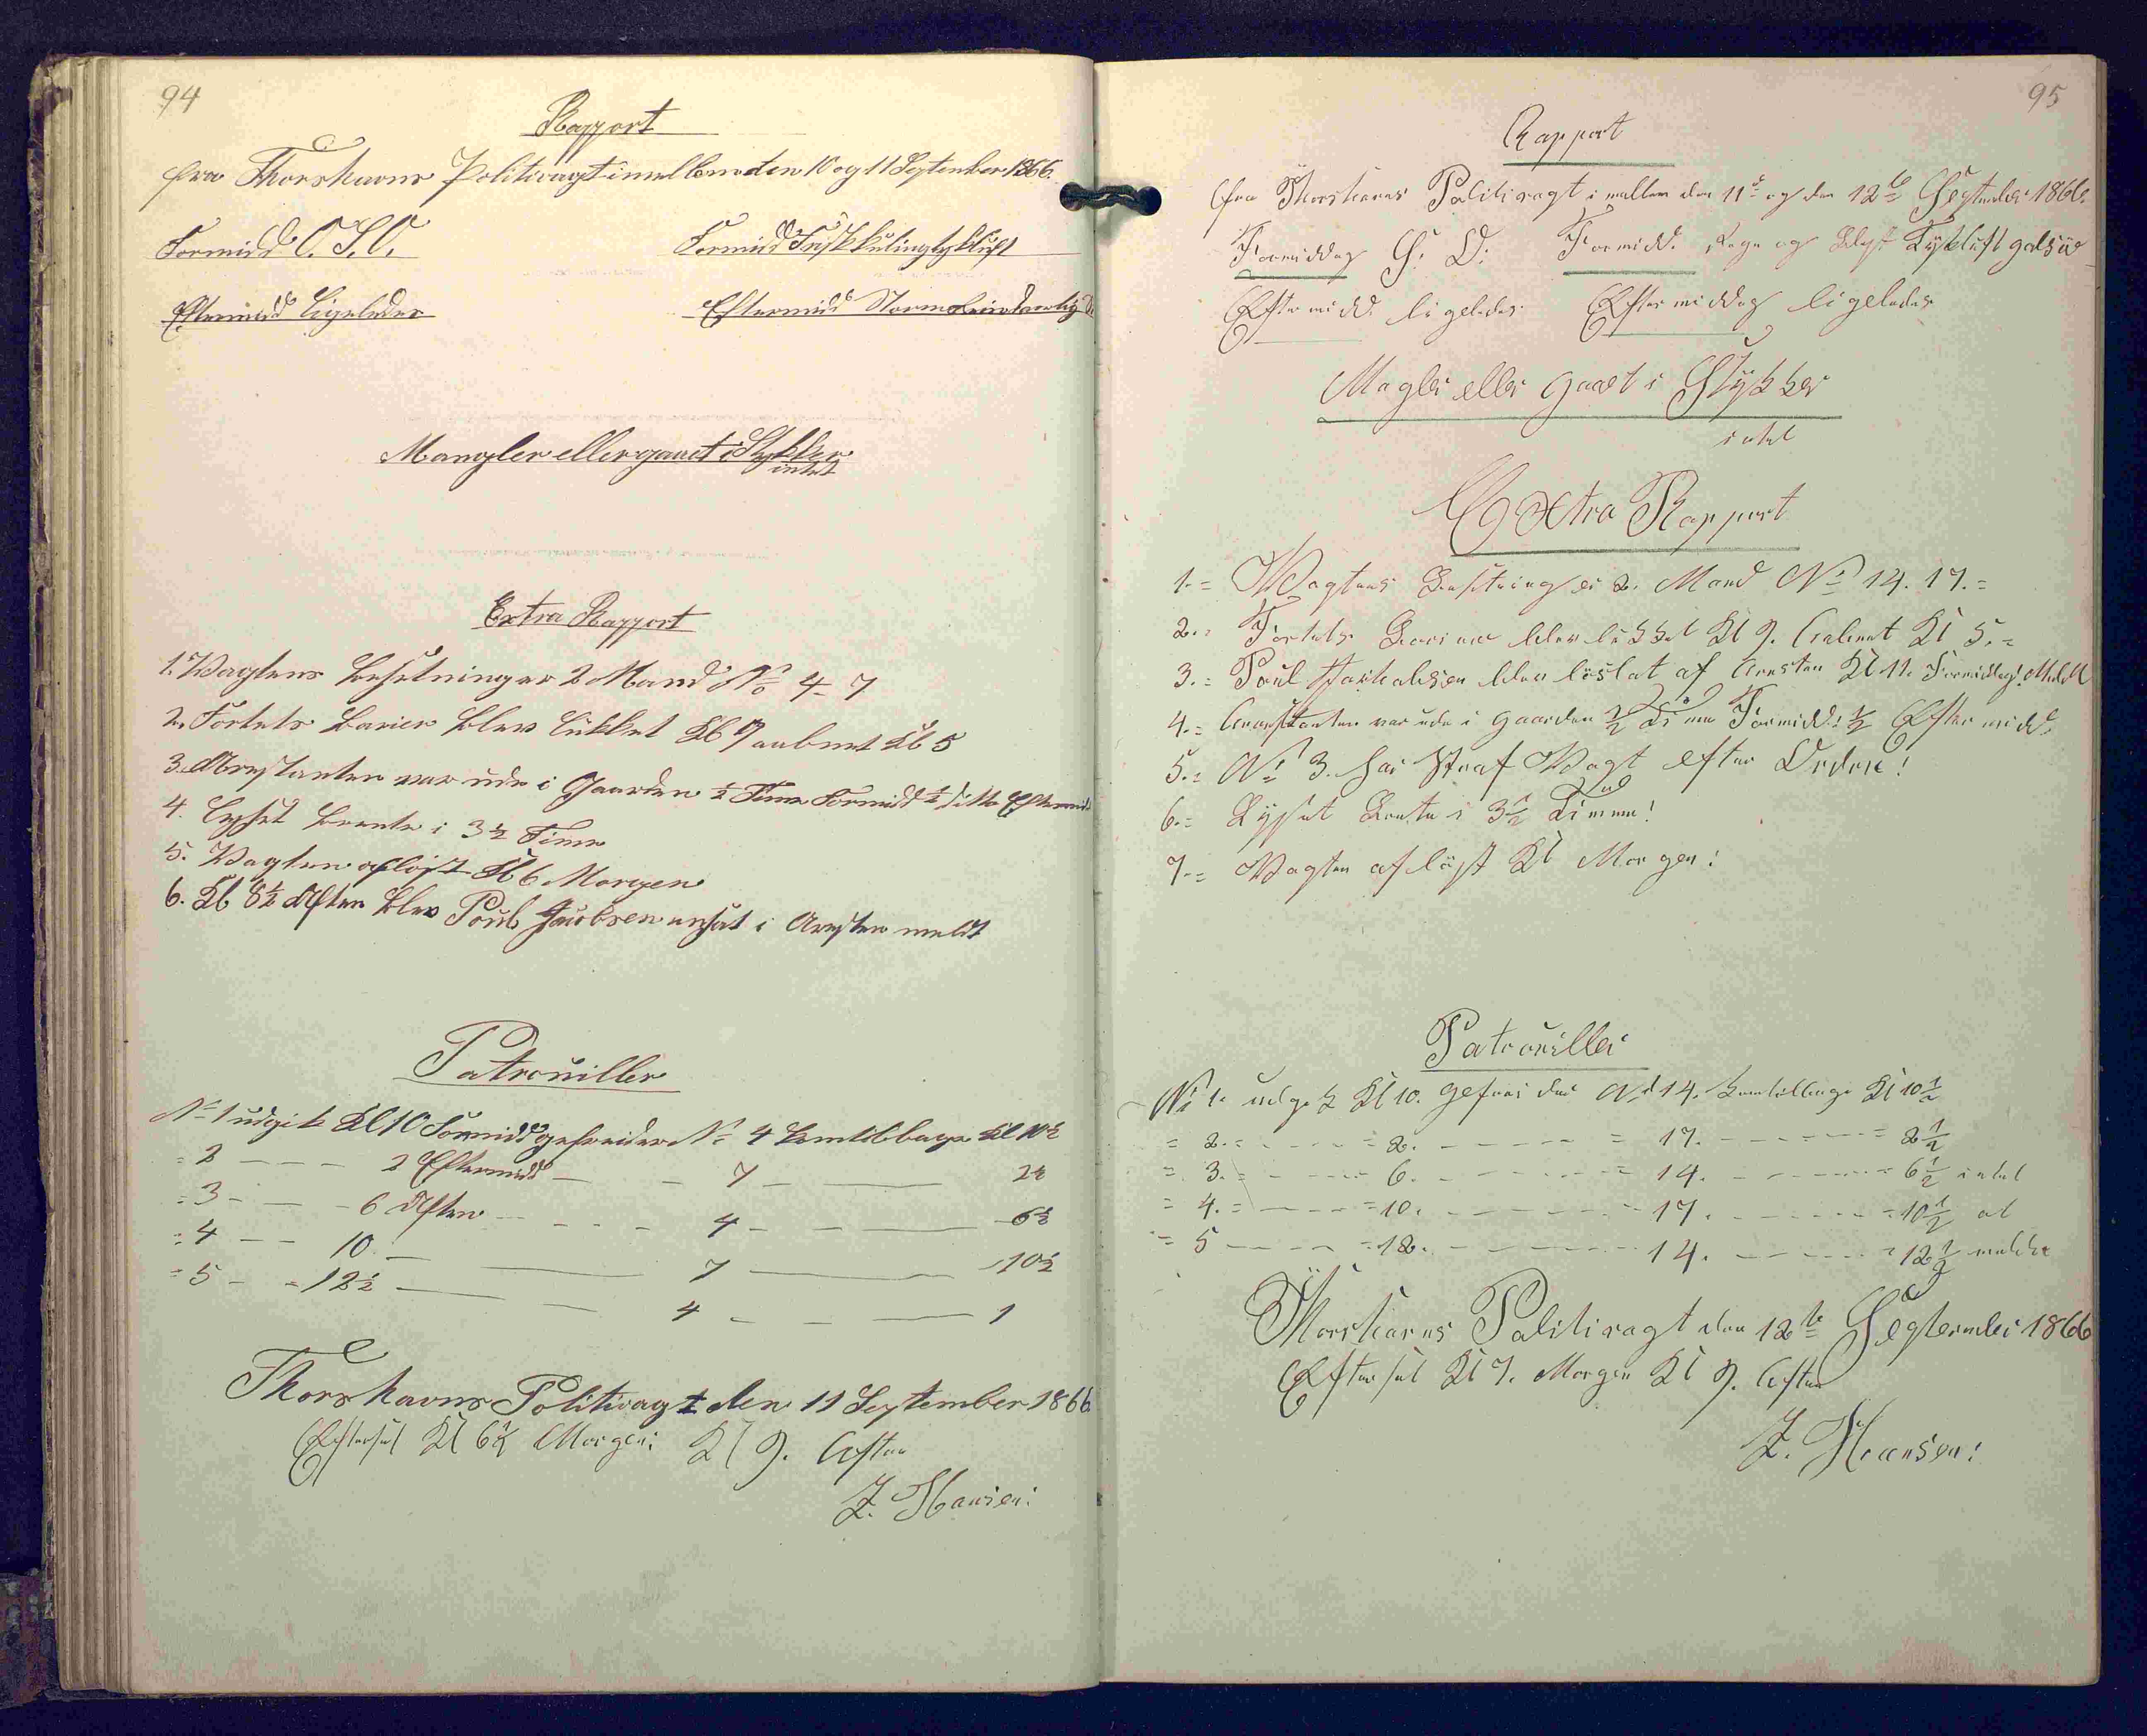 94
Rapport
fra Thorshavns Politivagt imellem den 10 og 11 September 1866.
Formidd O.S.O. Formidd Frisk Kuling tyk Luft
Eftermidd Ligeledes Eftermidd Storm
Mangler eller gaaet i Stykker
intet
Extra Rapport
1. Vagtens besetning er 2 Mand No 4 - 7
2. Fortets barier blev lükket Kl 9 aabnet Kl 5
3. Arestanten var ude i Gaarden ½ Time Formidd ½ ditto Eftermidd
4. Lyset brente i 3½ Time
5. Vagten afløst Kl 6 Morgen
6. Kl 8½ Aften blev Poul Jacobsen ansat i Aresten meldt
Patrouiller
No 1 udgik Kl 10 Formidd gefreider No 4 kom tilbage Kl 10½
= 2 — — — 2 Eftermidd — — 7 — — 2½
= 3 - — - 6 Aften — - - - 4 — - — 6½
= 4 — — 10 — — 7 — 10½
= 5 - - 12½ — — 4 — - — 1
Thorshavns Politivagt den 11 September 1866
Efterset Kl 6½ Morgen: Kl 9. Aften
Z. Hansen:
95
Rapport
fra Thorshavns Politivagt i mellem den 11te og den 12te September 1866.
Formiddag S. O: Formidd. Regn og Tyk luft
Eftermidd. ligeledes Eftermiddag ligeledes
Magler eller gaaet i Stykker
intet
Extra Rapport
1. = Wagtens Besetning er 2. Mand No 14. 17. =
2. = Fortets Bariere blev lükket Kl 9. Aabnet Kl 5. =
3. = Poul blev löslat af Aresten Kl 11. Formiddag! Meldt
4. = Arrestanten var ude i gaarden ½ Time Formidd: ½ Eftermidd.
5. = No 3. har Straf Wagt efter Ordre!
6. = Lyset Brente i 3½ Timme!
7. = Wagten aflöst Kl Morgen:
Patrouiller
No 1. udgik Kl 10. gefreider No 14. kom tilbage Kl 10½
= 2. = - - - - = 2. - - - - - = 17. - - - - - = 2½
= 3. = - - - - 6. - - - - - = 14. - - - - - = 6½ intet
= 4. = - - - - = 10. - - - - - 17. - - - - - = 10½ at
= 5 - - - - = 12. - - - - - 14. - - - - - = 12½ melde
Thorshavns Politivagt den 12te September 1866
Efterset Kl 7. Morgen Kl 9. Aften
Z. Hansen: